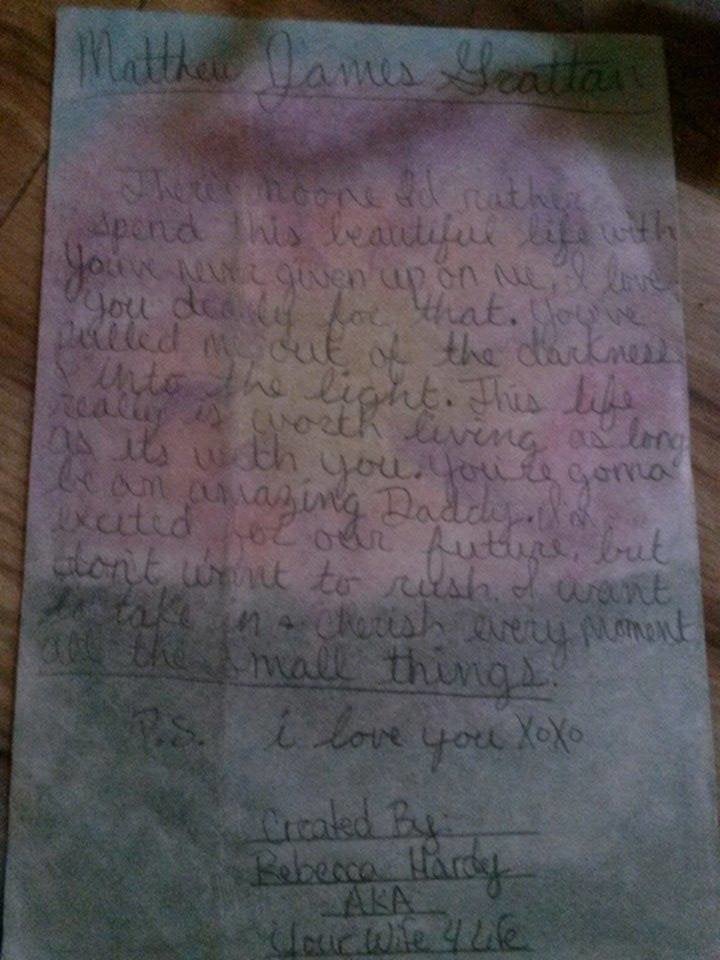 Matthew James Grattan
There's noone I'd rather
spend this beautiful life with
You've never given up on me, I love
you dearly for that. You've
pulled me out of the darkness
& into the light. This life
really is worth living as long
as its with you. You're gonna
be an amazing Daddy. I'm
excited for our future, but
don't want to rush. I want
to take in & cherish every moment
all the small things.
P.S. i love you XoXo
Created By:
Rebecca Hardy
AKA
Your Wife 4 Life